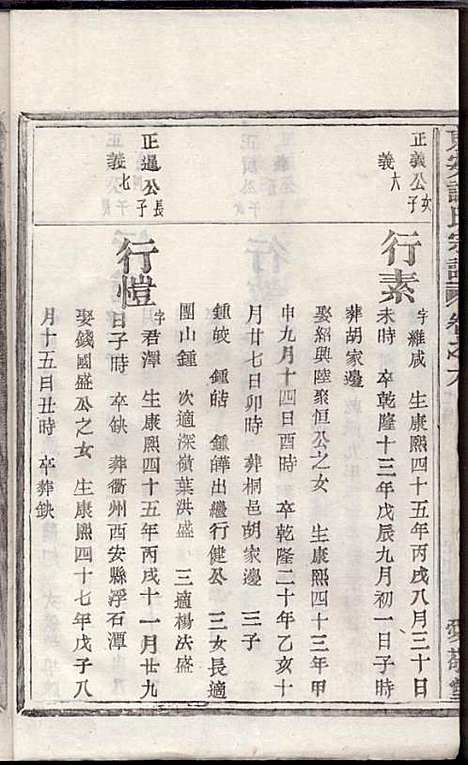 東安許氏宗譜 卷之八
愛敬堂
正義公女子
義六
行素
字維咸 生康熙四十五年丙戌八月三十日
未時 卒乾隆十三年戊辰九月初一日子時
葬胡家邊
娶紹興陸聚恒公之女 生康熙四十三年甲
申九月十四日酉時 卒乾隆二十年乙亥十
月廿七日卯時 葬桐邑胡家邊 三子
鍾皎 鍾皓 鍾皣出繼行健公 三女長適
團山鍾 次適深嶺葉洪盛 三適楊法盛
正暹公長子
義七
行愷
字君潭 生康熙四十五年丙戌十一月廿九
日子時 卒缺 葬衢州西安縣浮石潭
娶錢國盛公之女 生康熙四十七年戊子八
月十五日丑時 卒葬缺